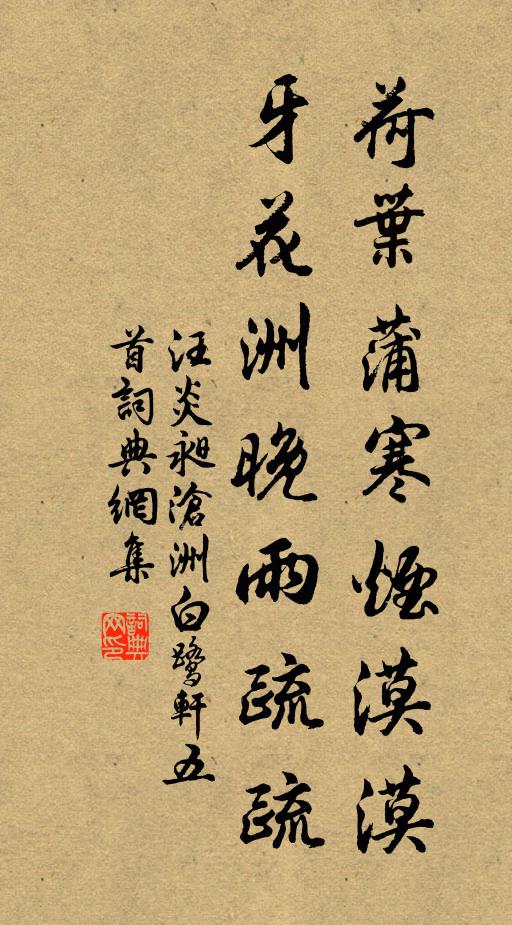 荷葉蒲寒煙漠漠
牙花洲晚雨疏疏
汪炎昶滄洲白鷺軒五
首詞典網集
詞典網印